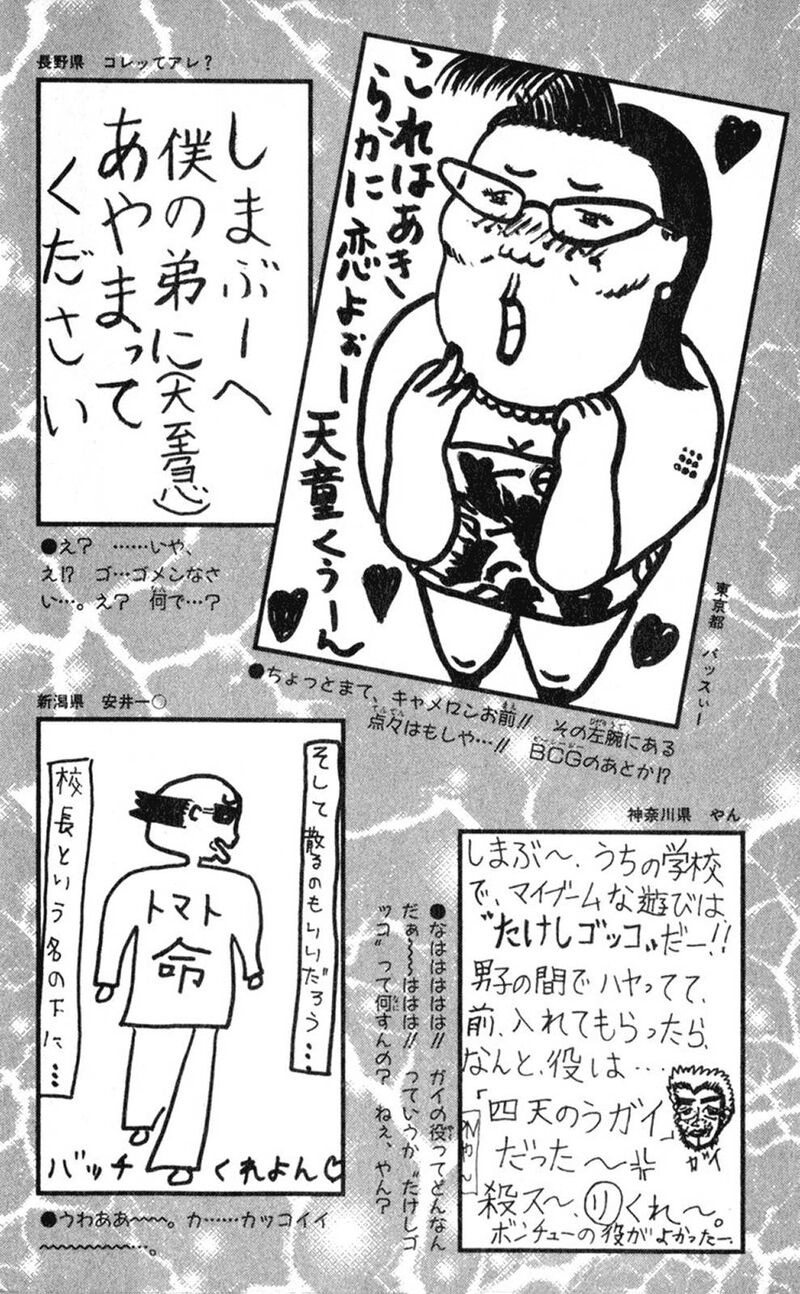 東京都　バッスぃー
これはあき
らかに恋よぉー天童くぅーん
●ちょっとまて、キャメロンお前!!　その左腕にある
点々はもしや…!!　BCGのあとか!?
長野県　コレッてアレ？
しまぶーへ
僕の弟に(大至急)
あやまって
ください
●え？　……いや、
え!?　ゴ…ゴメンなさ
い…。え？　何で…？
神奈川県　やん
しまぶ〜、うちの学校
で、マイブームな遊びは、
"たけしゴッコ"だー!!
男子の間でハヤってて、
前、入れてもらったら、
なんと、役は…
「四天のうガイ」
だった〜
殺ス〜、リくれ〜。
ボンチューの役がよかったー。
ガイ
●なはははは!!　ガイの役ってどんなん
だぁ〜〜ははは!!　っていうか"たけしゴ
ッコ"って何すんの？　ねぇ、やん？
新潟県　安井一○
そして散るのもいいだろう…
校長という名の下に…
トマト
命
バッチ　くれよん♡
●うわああ〜〜。カ……カッコイイ
〜〜〜〜〜〜…。